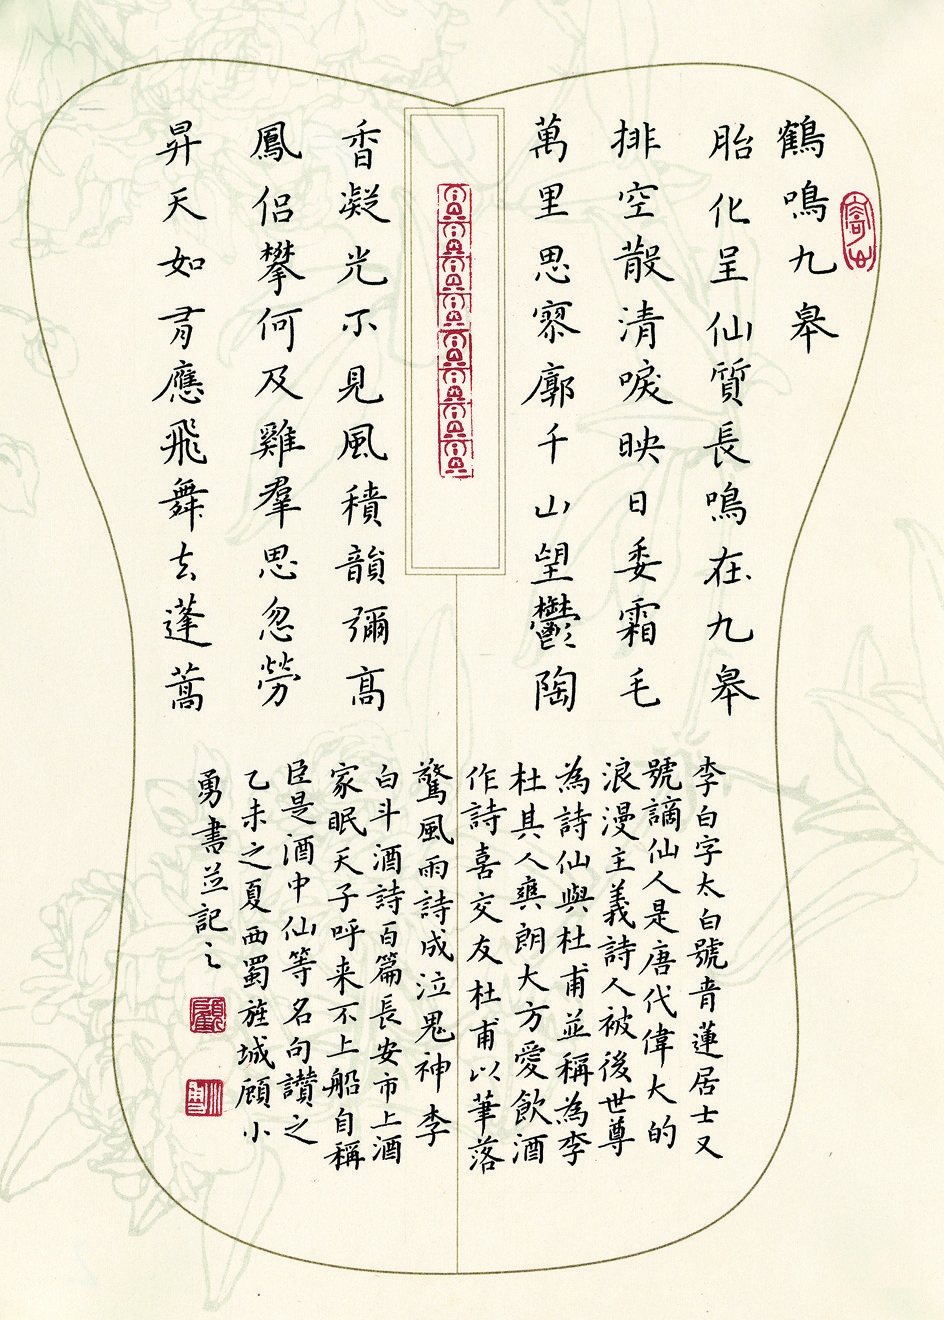 鶴鳴九皋
胎化呈仙質長鳴在九皋
排空散清唳映日委霜毛
萬里思寥廓千山望鬱陶
香凝光不見風積韻彌高
鳳侶攀何及雞羣思忽勞
昇天如有應飛舞去蓬蒿
李白字太白號青蓮居士又
號謫仙人是唐代偉大的
浪漫主義詩人被後世尊
為詩仙與杜甫並稱為李
杜其人爽朗大方愛飲酒
作詩喜交友杜甫以華落
驚風雨詩成泣鬼神李
白斗酒詩百篇長安市上酒
家眠天子呼来不上船自稱
臣是酒中仙等名句讚之
乙未之夏西蜀旌城顧小
勇書並記之